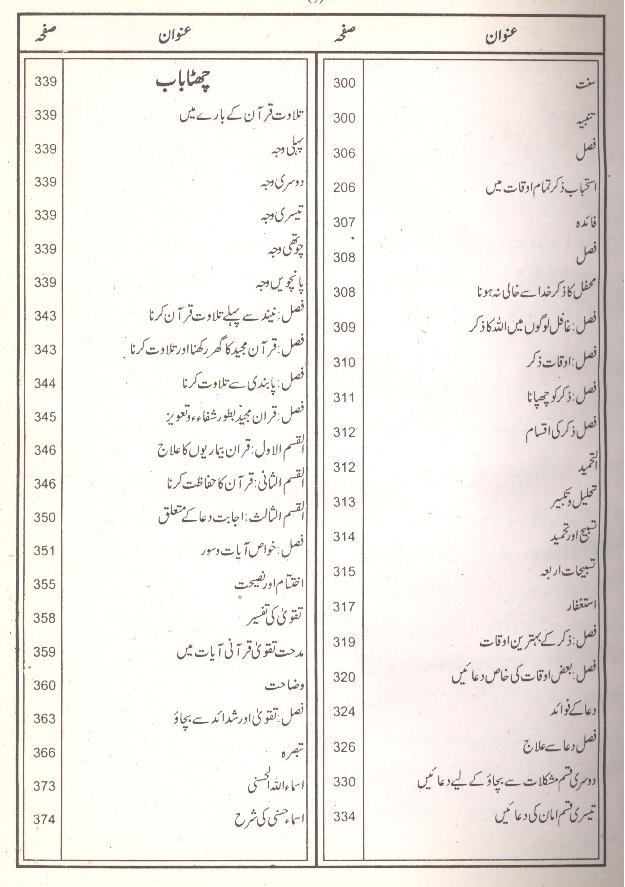 عنوان صفحہ
سنت 300
تنبیہ 300
فصل 306
استحباب ذکر تمام اوقات میں 206
فائدہ 307
فصل 308
محفل کا ذکر خدا سے خالی نہ ہونا 308
فصل: غافل لوگوں میں اللہ کا ذکر 309
فصل: اوقات ذکر 310
فصل: ذکر کو چھپانا 311
فصل ذکر کی اقسام 312
التحمید 312
تحلیل و تکبیر 313
تسبیح اور تحمید 314
تسبیحات اربعہ 315
استغفار 317
فصل: ذکر کے بہترین اوقات 319
فصل: بعض اوقات کی خاص دعائیں 320
دعا کے فوائد 324
فصل دعا سے علاج 326
دوسری قسم مشکلات سے بچاؤ کے لیے دعائیں 330
تیسری قسم امان کی دعائیں 334
عنوان صفحہ
چھٹا باب 339
تلاوت قرآن کے بارے میں 339
پہلی وجہ 339
دوسری وجہ 339
تیسری وجہ 339
چوتھی وجہ 339
پانچویں وجہ 339
فصل: نیند سے پہلے تلاوت قرآن کرنا 343
فصل: قرآن مجید کا گھر رکھنا اور تلاوت کرنا 343
فصل: پابندی سے تلاوت کرنا 344
فصل: قران مجید بطور شفاء و تعویز 345
القسم الاول: قران بیماریوں کا علاج 346
القسم الثانی: قرآن کا حفاظت کرنا 346
القسم الثالث: اجابت دعا کے متعلق 350
فصل: خواص آیات و سور 351
اختتام اور نصیحت 355
تقویٰ کی تفسیر 358
مدحت تقویٰ قرآنی آیات میں 359
وضاحت 360
فصل: تقویٰ اور شدائد سے بچاؤ 363
تبصرہ 366
اسماء اللہ الحسنی 373
اسماء حسنی کی شرح 374